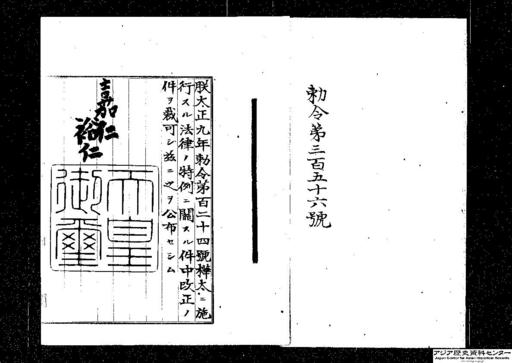 勅令第三百五十六號
朕大正九年勅令第百二十四號樺太ニ施
行スル法律ノ特例ニ關スル件中改正ノ
件ヲ裁可シ茲ニ之ヲ公布セシム
嘉仁
裕仁
天皇
御璽
アジア歴史資料センター
Japan Center for Asian Historical Records